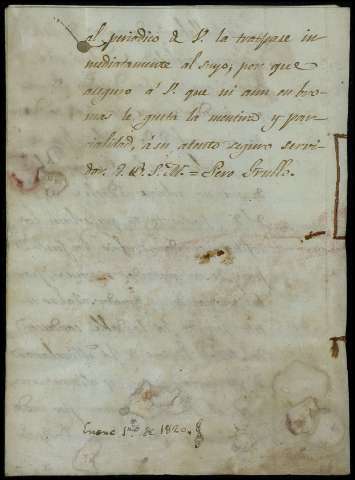 al periodico de Sr. la traspase in
mediatamente al suyo; por que
aseguro á Sr. que ni aun en bro
mas le gusta la mentira y par
cialidad, á su atento seguro servi
dor. Q. B. S. M. = Pero Grullo.
Enero 1º de 1820.